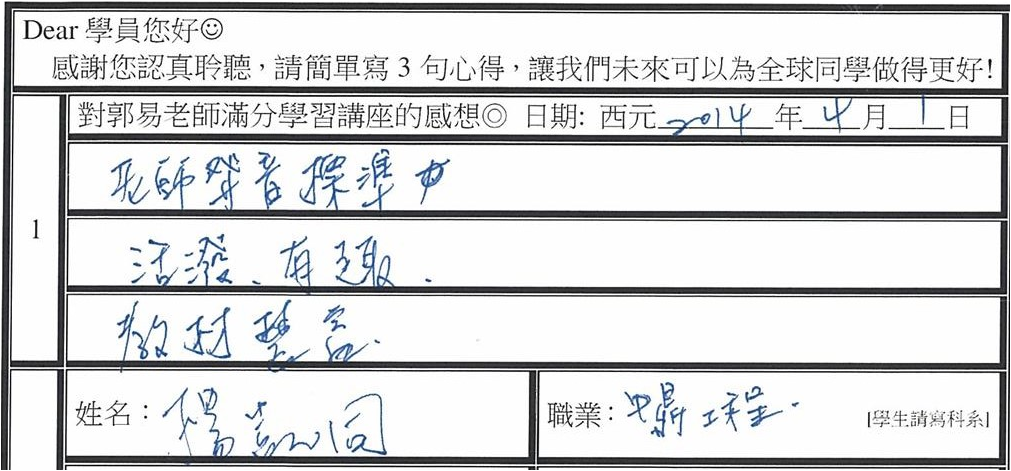 Dear 學員您好☺
感謝您認真聆聽,請簡單寫 3 句心得,讓我們未來可以為全球同學做得更好!
對郭易老師滿分學習講座的感想◎ 日期: 西元 2014 年 4 月 1 日
1
老師聲音標準
活潑、有趣.
教材豐富.
姓名: 楊 同
職業: 工程. [學生請寫科系]